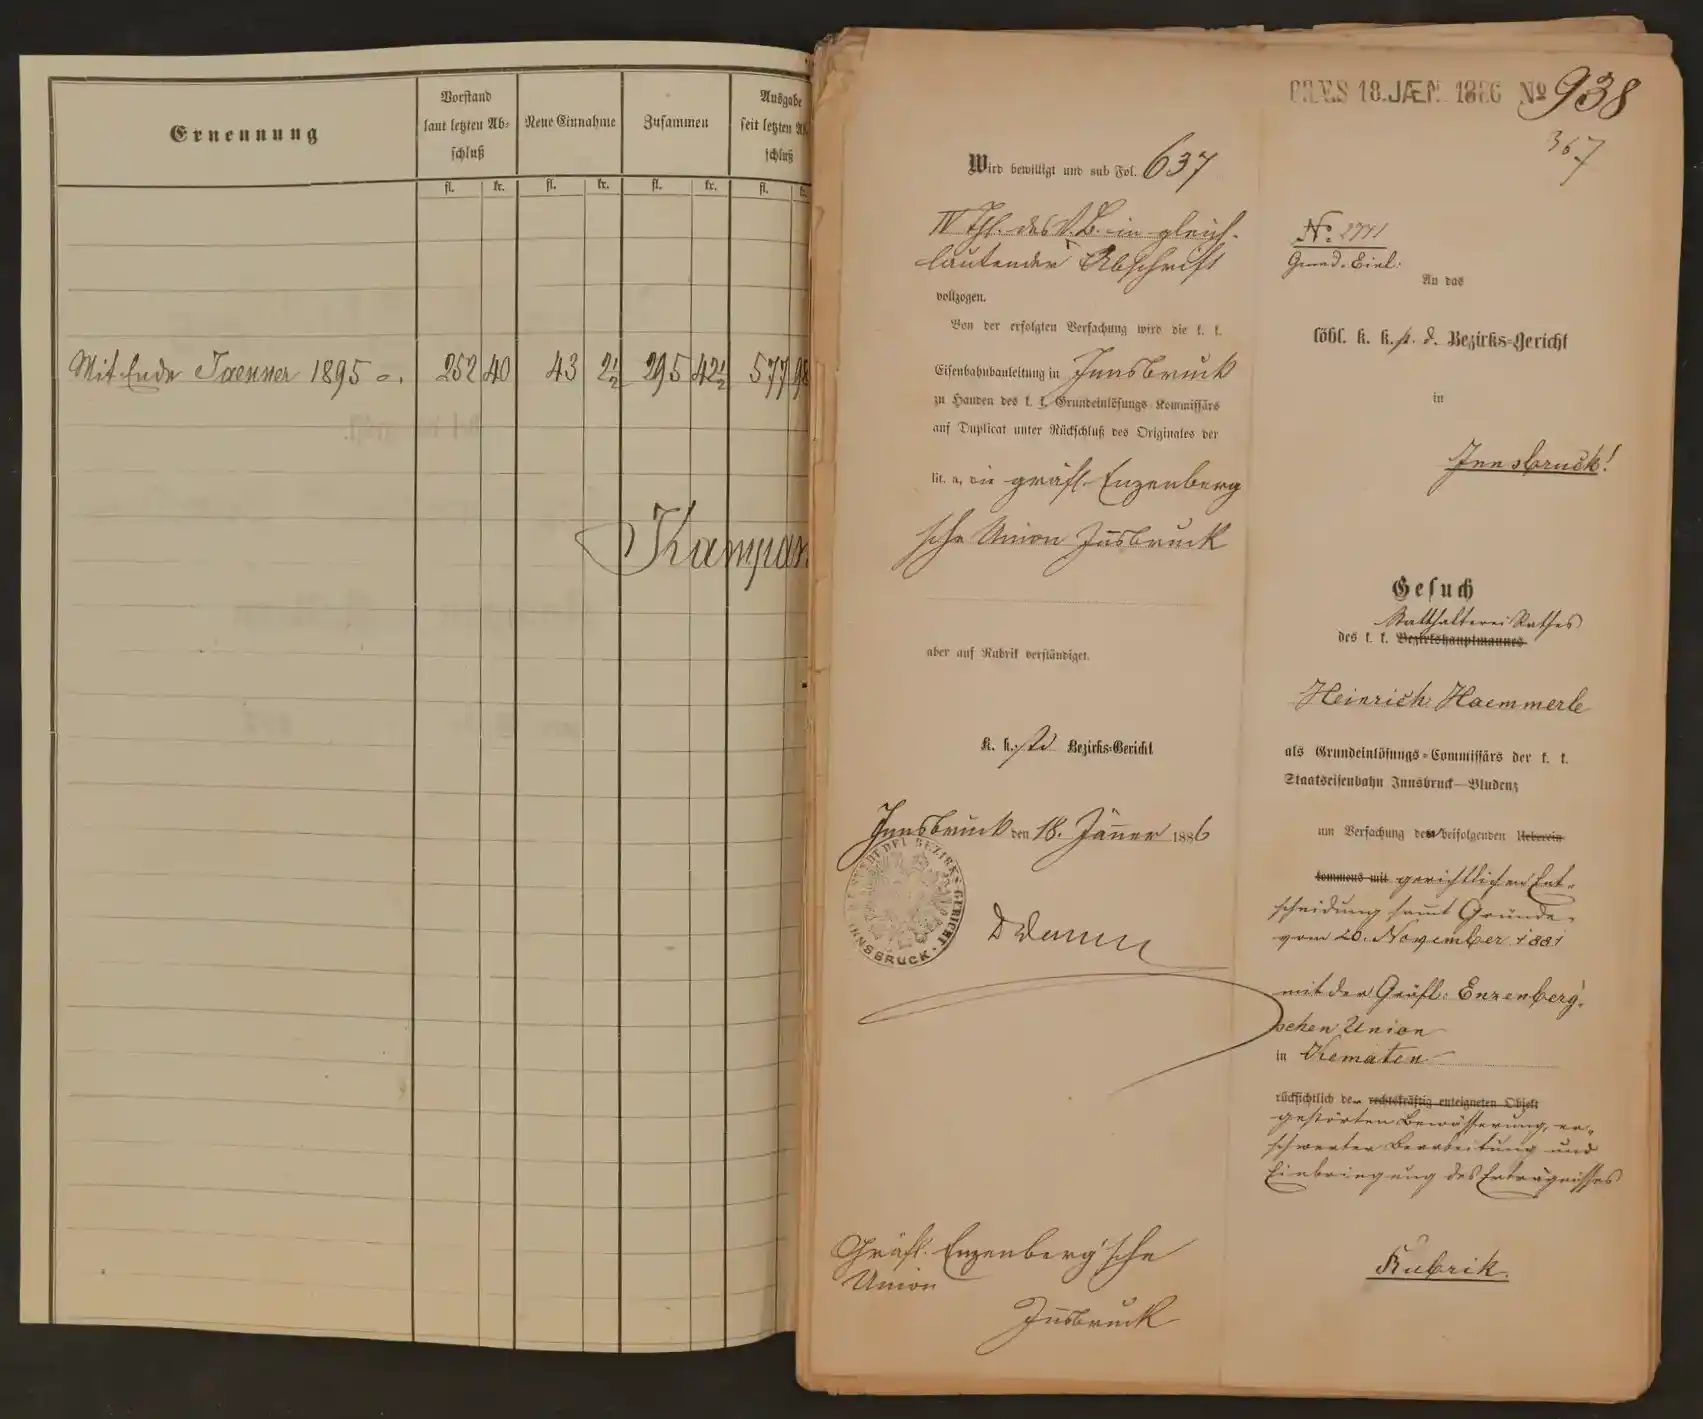 Ernennung
Vorstand
laut letzten Ab-
schluß
Neue Einnahme
Zusammen
Ausgabe
seit letzten
schluß
fl. kr. fl. kr. fl. kr. fl.
Mit Ende Jaenner 1895 252 40 43 2½ 295 42½ 577 98
PRÆS 18. JÆN. 1886 No 938
367
Wird bewilligt und sub Fol. 637
IV Thl. des V. B. in gleich-
lautender Abschrift
vollzogen.
Von der erfolgten Verfachung wird die k. k.
Eisenbahnbauleitung in Innsbruck
zu Handen des k. k. Grundeinlösungs-Kommissärs
auf Duplicat unter Rückschluß des Originales der
lit. a, die gräfl. Enzenberg
sche Union Innsbruck
aber auf Rubrik verständiget.
K. k. st. d. Bezirks-Gericht
Innsbruck den 18. Jänner 1886
BEZIRKS-GERICHT
INNSBRUCK
Gräfl. Enzenberg'sche
Union
Innsbruck
No. 2771
Grund-Einl:
An das
löbl. k. k. st. d. Bezirks-Gericht
in
Innsbruck!
Gesuch
Statthalterei Rathes
des k. k. Bezirkshauptmannes
Heinrich Haemmerle
als Grundeinlösungs-Commissärs der k. k.
Staatseisenbahn Innsbruck—Bludenz
um Verfachung der beifolgenden Ueberein-
kommens mit gerichtlichen Ent-
scheidung samt Gründe
vom 20. November 1881
mit der Gräfl: Enzenberg'-
schen Union
in Kematen
rücksichtlich der rechtskräftig enteigneten Objekt
gestörten Bewässerung, er-
schwerter Bearbeitung und
Einbringung des Erträgnisses
Rubrik.